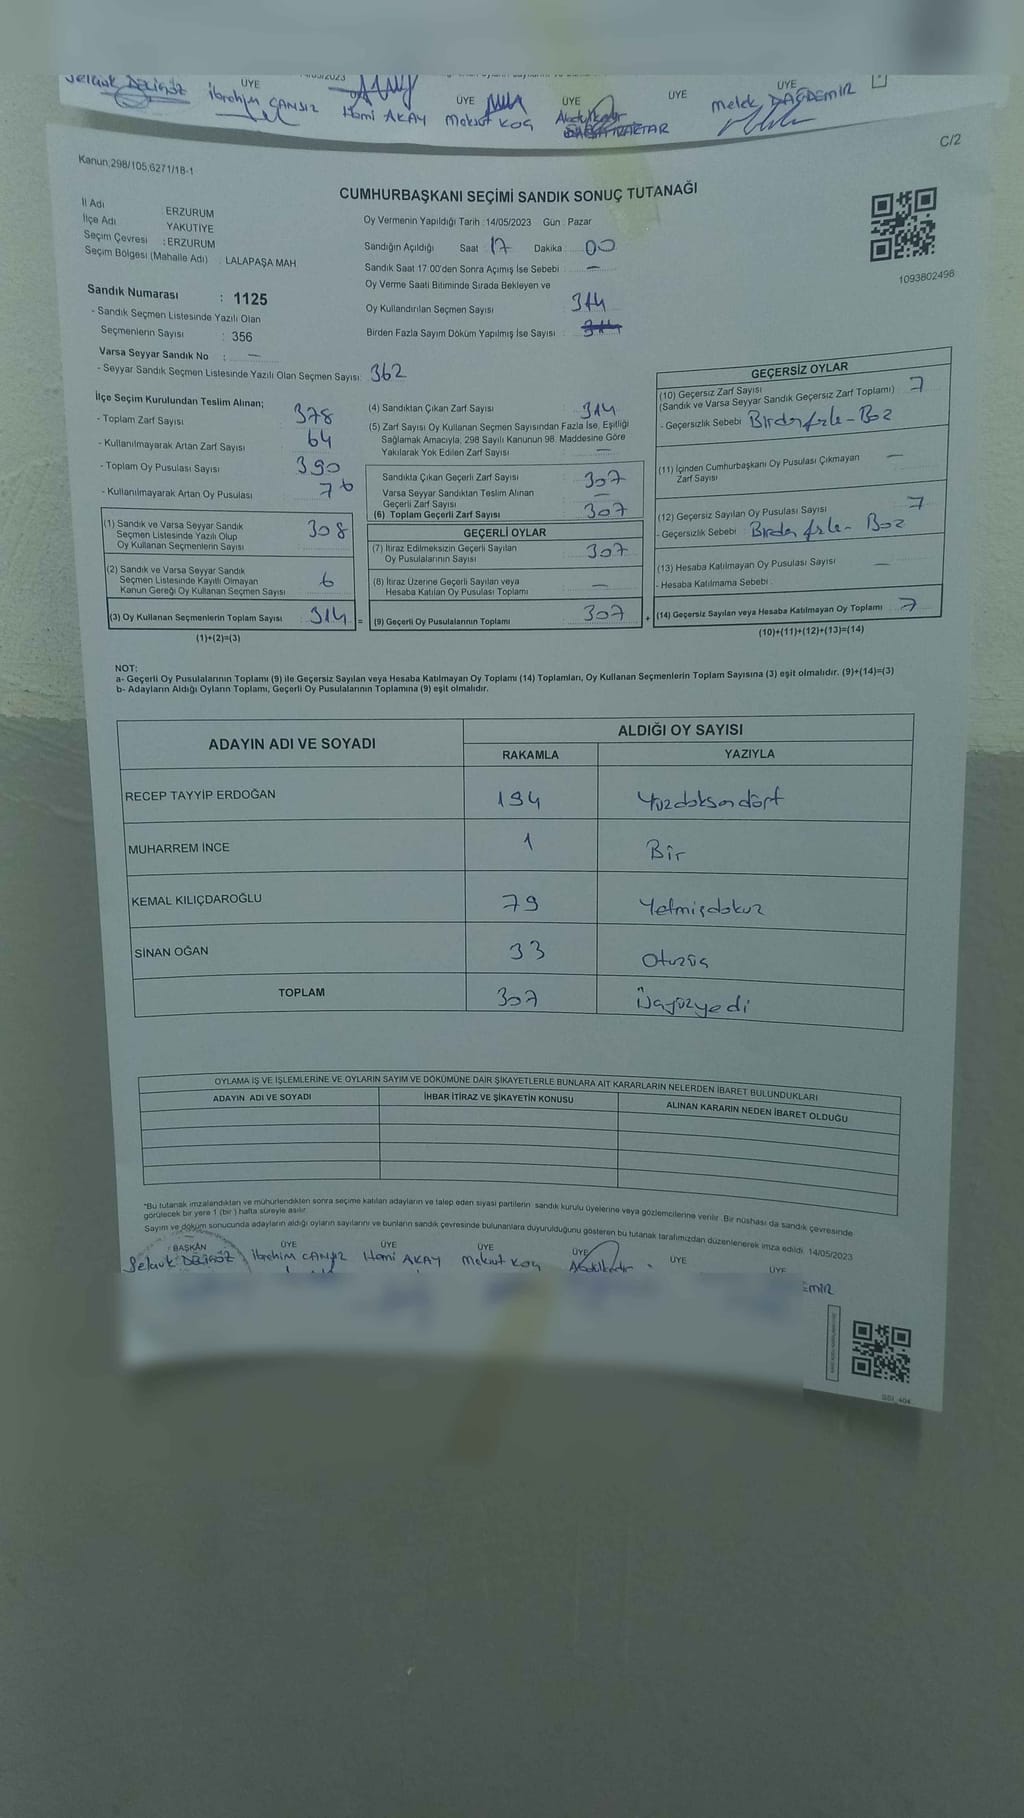 Selçuk DELİGÖZ
ÜYE
İbrahim CANSIZ
Hami AKAY
ÜYE
Maksut KOÇ
ÜYE
Abdulkadir
ÜYE
ÜYE
Melek DAĞDEMİR
C/2
Kanun,298/105,6271/18-1
CUMHURBAŞKANI SEÇİMİ SANDIK SONUÇ TUTANAĞI
İl Adı : ERZURUM
İlçe Adı : YAKUTİYE
Seçim Çevresi : ERZURUM
Seçim Bölgesi (Mahalle Adı) : LALAPAŞA MAH
Oy Vermenin Yapıldığı Tarih : 14/05/2023 Gün : Pazar
Sandığın Açıldığı Saat : 17 Dakika : 00
Sandık Saat 17:00'den Sonra Açımış İse Sebebi : —
Oy Verme Saati Bitiminde Sırada Bekleyen ve
Oy Kullandırılan Seçmen Sayısı : 314
Birden Fazla Sayım Döküm Yapılmış İse Sayısı :
1093802498
Sandık Numarası : 1125
- Sandık Seçmen Listesinde Yazılı Olan
Seçmenlerin Sayısı : 356
Varsa Seyyar Sandık No : —
- Seyyar Sandık Seçmen Listesinde Yazılı Olan Seçmen Sayısı: 362
İlçe Seçim Kurulundan Teslim Alınan;
- Toplam Zarf Sayısı 378
- Kullanılmayarak Artan Zarf Sayısı 64
- Toplam Oy Pusulası Sayısı 390
- Kullanılmayarak Artan Oy Pusulası 76
(1) Sandık ve Varsa Seyyar Sandık
Seçmen Listesinde Yazılı Olup
Oy Kullanan Seçmenlerin Sayısı 308
(2) Sandık ve Varsa Seyyar Sandık
Seçmen Listesinde Kayıtlı Olmayan
Kanun Gereği Oy Kullanan Seçmen Sayısı 6
(3) Oy Kullanan Seçmenlerin Toplam Sayısı 314 =
(1)+(2)=(3)
(4) Sandıktan Çıkan Zarf Sayısı 314
(5) Zarf Sayısı Oy Kullanan Seçmen Sayısından Fazla İse, Eşitliği
Sağlamak Amacıyla, 298 Sayılı Kanunun 98. Maddesine Göre
Yakılarak Yok Edilen Zarf Sayısı —
Sandıkta Çıkan Geçerli Zarf Sayısı 307
Varsa Seyyar Sandıktan Teslim Alınan
Geçerli Zarf Sayısı —
(6) Toplam Geçerli Zarf Sayısı 307
GEÇERLİ OYLAR
(7) İtiraz Edilmeksizin Geçerli Sayılan
Oy Pusulalarının Sayısı 307
(8) İtiraz Üzerine Geçerli Sayılan veya
Hesaba Katılan Oy Pusulası Toplamı —
(9) Geçerli Oy Pusulalarının Toplamı 307 +
GEÇERSİZ OYLAR
(10) Geçersiz Zarf Sayısı
(Sandık ve Varsa Seyyar Sandık Geçersiz Zarf Toplamı) : 7
- Geçersizlik Sebebi : Birden fazla - Boz
(11) İçinden Cumhurbaşkanı Oy Pusulası Çıkmayan
Zarf Sayısı —
(12) Geçersiz Sayılan Oy Pusulası Sayısı 7
- Geçersizlik Sebebi : Birden fazla - Boz
(13) Hesaba Katılmayan Oy Pusulası Sayısı —
- Hesaba Katılmama Sebebi :
(14) Geçersiz Sayılan veya Hesaba Katılmayan Oy Toplamı 7
(10)+(11)+(12)+(13)=(14)
NOT:
a- Geçerli Oy Pusulalarının Toplamı (9) ile Geçersiz Sayılan veya Hesaba Katılmayan Oy Toplamı (14) Toplamları, Oy Kullanan Seçmenlerin Toplam Sayısına (3) eşit olmalıdır. (9)+(14)=(3)
b- Adayların Aldığı Oyların Toplamı, Geçerli Oy Pusulalarının Toplamına (9) eşit olmalıdır.
ADAYIN ADI VE SOYADI
ALDIĞI OY SAYISI
RAKAMLA YAZIYLA
RECEP TAYYİP ERDOĞAN 194 Yüzdoksandört
MUHARREM İNCE 1 Bir
KEMAL KILIÇDAROĞLU 79 Yetmişdokuz
SİNAN OĞAN 33 Otuzüç
TOPLAM 307 Üçyüzyedi
OYLAMA İŞ VE İŞLEMLERİNE VE OYLARIN SAYIM VE DÖKÜMÜNE DAİR ŞİKAYETLERLE BUNLARA AİT KARARLARIN NELERDEN İBARET BULUNDUKLARI
ADAYIN ADI VE SOYADI İHBAR İTİRAZ VE ŞİKAYETİN KONUSU ALINAN KARARIN NEDEN İBARET OLDUĞU
*Bu tutanak imzalandıktan ve mühürlendikten sonra seçime katılan adayların ve talep eden siyasi partilerin sandık kurulu üyelerine veya gözlemcilerine verilir. Bir nüshası da sandık çevresinde
görülecek bir yere 1 (bir) hafta süreyle asılır.
Sayım ve döküm sonucunda adayların aldığı oyların sayılarını ve bunların sandık çevresinde bulunanlara duyurulduğunu gösteren bu tutanak tarafımızdan düzenlenerek imza edildi. 14/05/2023
BAŞKAN ÜYE ÜYE ÜYE ÜYE ÜYE ÜYE
Selçuk DELİGÖZ İbrahim CANSIZ Hami AKAY Maksut KOÇ Abdulkadir
EMİR